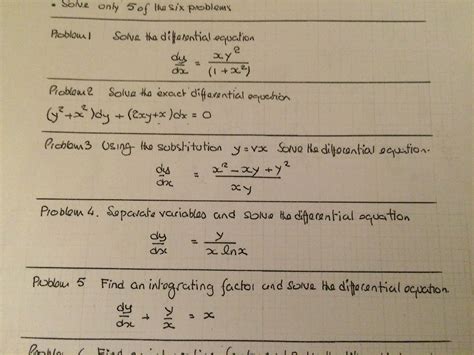 • Solve only 5 of the six problems
Problem 1 Solve the differential equation
dy/dx = xy²/(1+x²)
Problem 2 Solve the exact differential equation
(y²+x²)dy + (2xy+x)dx = 0
Problem 3 Using the substitution y=vx Solve the differential equation.
dy/dx = x²-xy+y²/xy
Problem 4. Separate variables and solve the differential equation
dy/dx = y/x lnx
Problem 5 Find an integrating factor and solve the differential equation
dy/dx + y/x = x